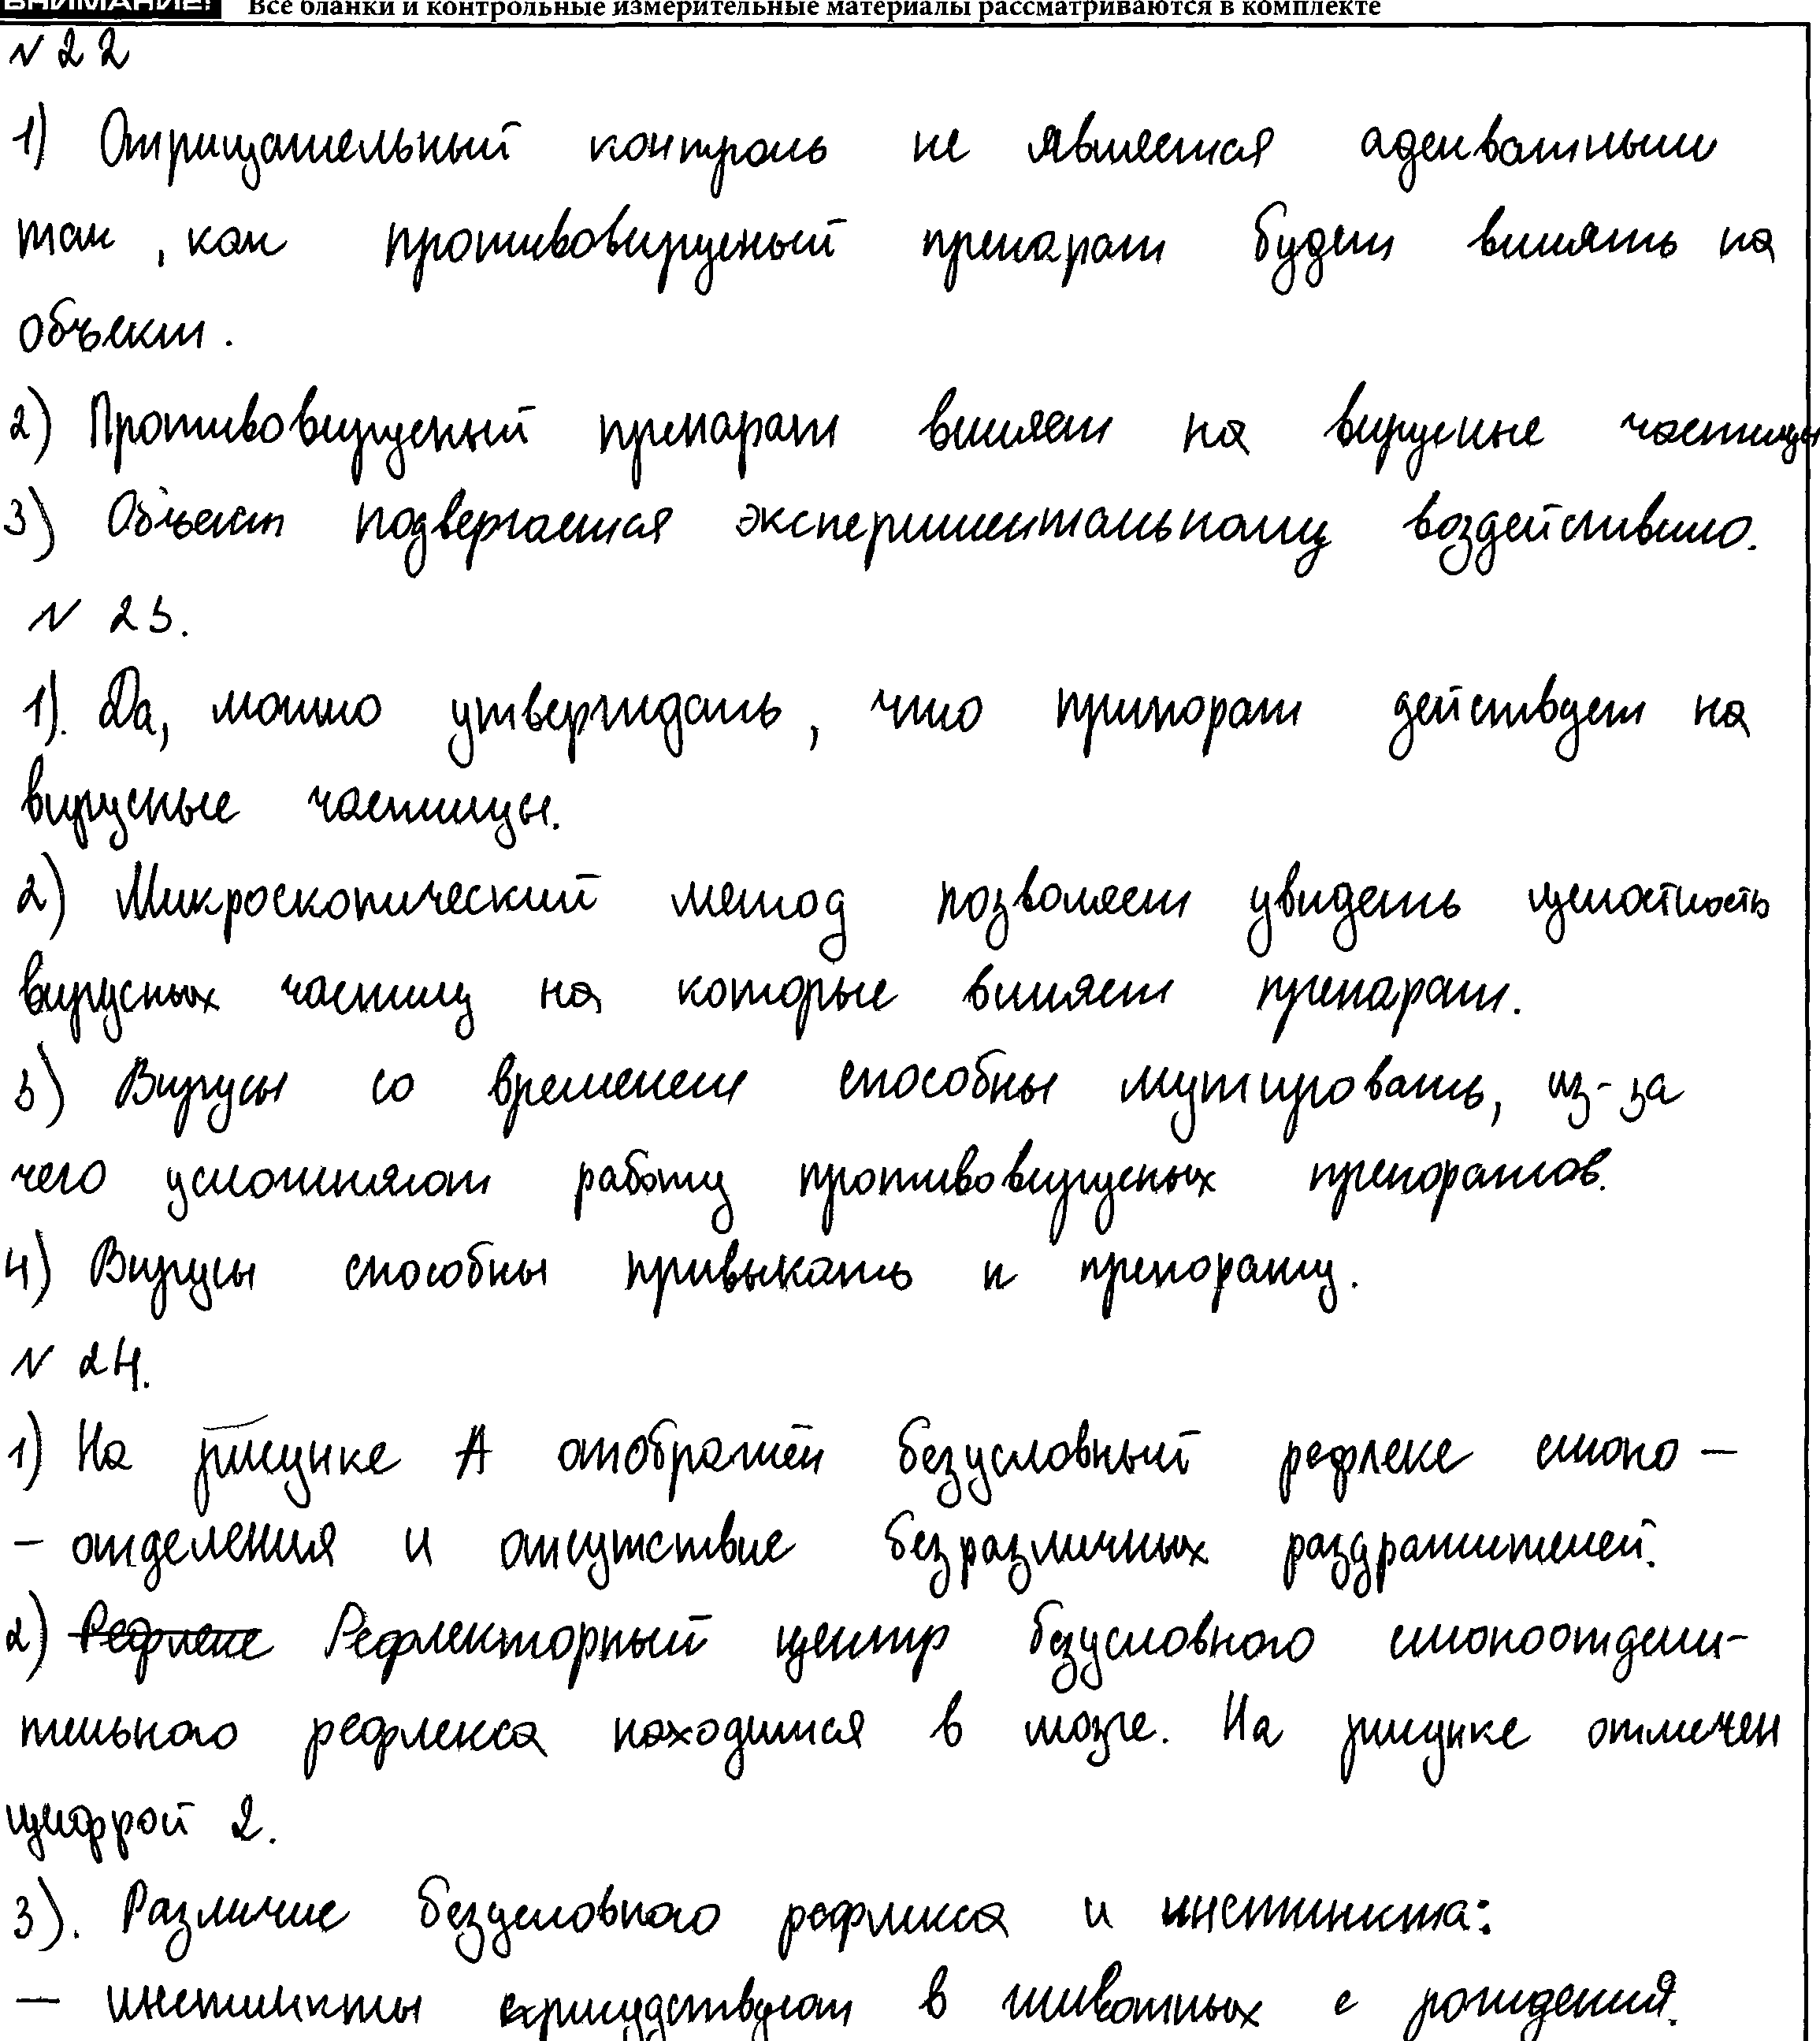 ВНИМАНИЕ! Все бланки и контрольные измерительные материалы рассматриваются в комплекте
N 22
1) Отрицательный контроль не является адекватным
так, как противовирусный препарат будет влиять на
объект.
2) Противовирусный препарат влияет на вирусные частицы
3) Объект подвергается экспериментальному воздействию.
N 23.
1). Да, можно утверждать, что припорат действует на
вирусные частицы.
2) Микроскопический метод позволяет увидеть целостность
вирусных частиц на которые влияет препарат.
3) Вирусы со временем способны мутировать, из-за
чего усложняют работу противовирусных препоратов.
4) Вирусы способны привыкать к препорату.
N 24.
1) На рисунке А отображён безусловный рефлекс слюно –
– отделения и отсутствие безразличных раздражителей.
2) Рефлекс Рефлекторный центр безусловного слюноотдели-
тельного рефлекса находится в мозге. На рисунке отмечен
цифрой 2.
3). Различие безусловного рефлекса и инстинкта:
– инстинкты присудствуют в животных с рождения.